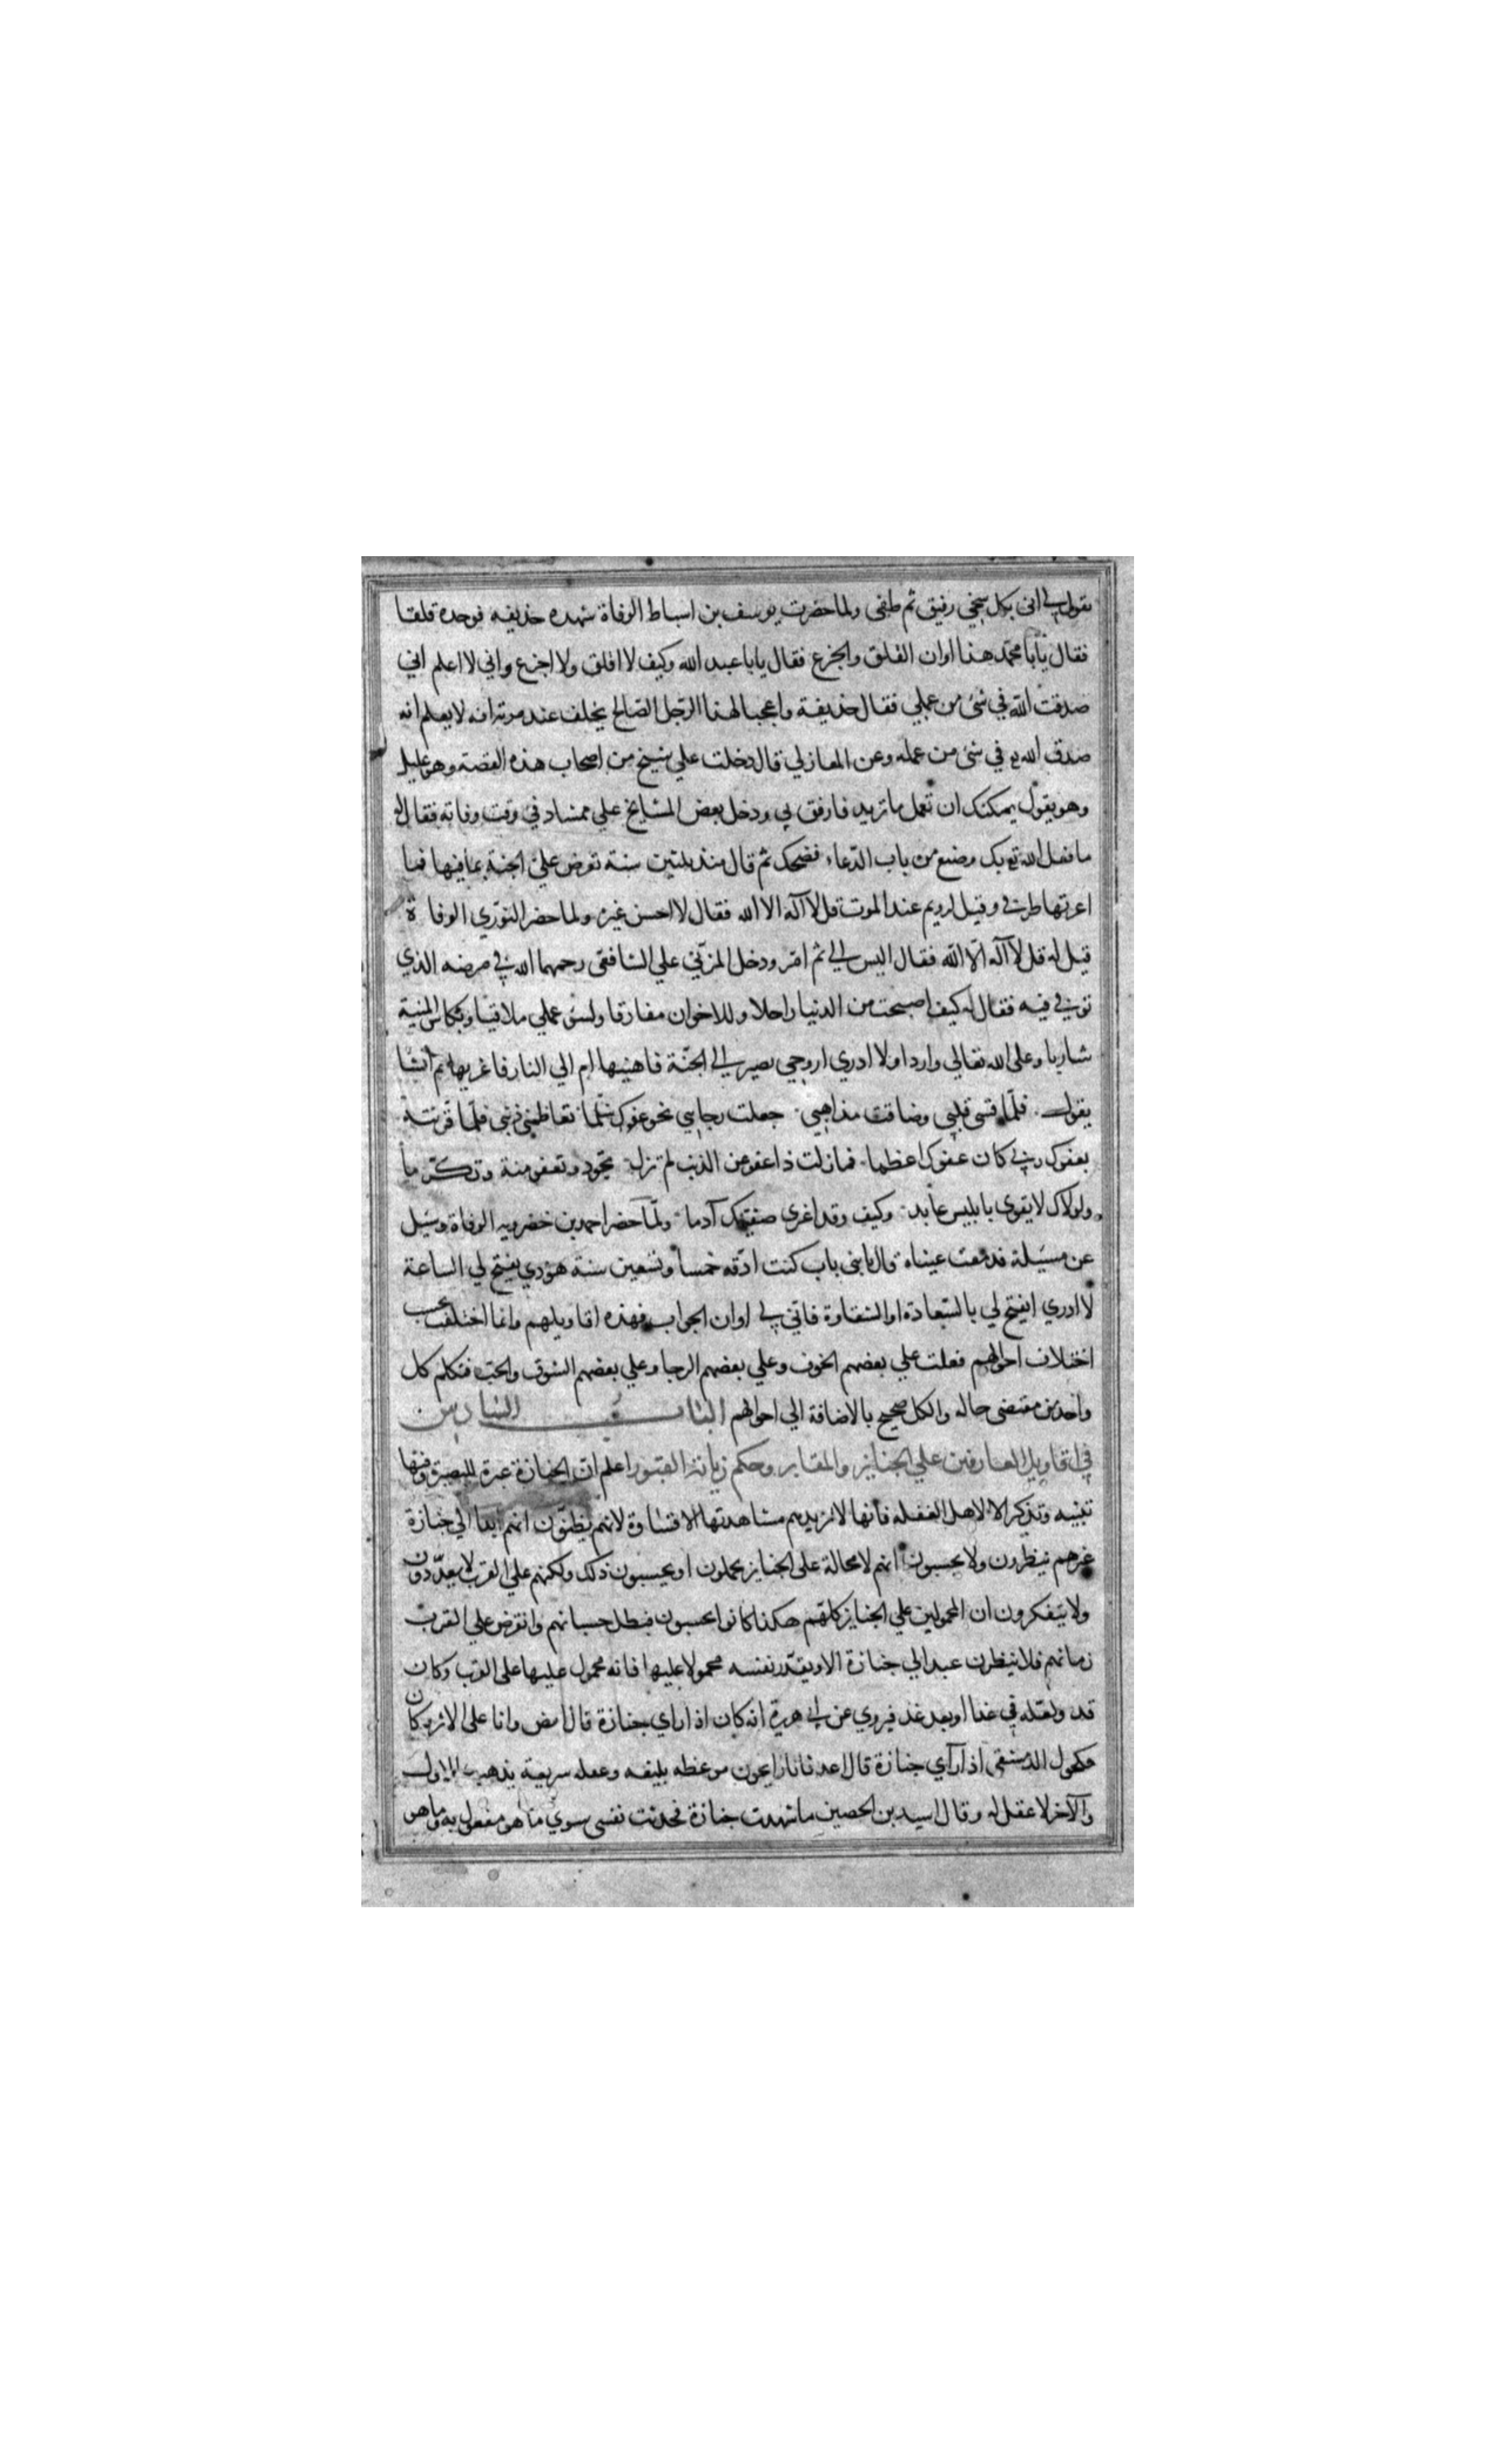 يقول لي اني بكل سخي رفيق ثم طفي ولما حضرت يوسف بن اسباط الوفاة شهده حذيفه فوجده قلقا
فقال يابا محمد هذا اوان القلق والجزع فقال يابا عبد الله وكيف لا اقلق ولا اجزع واني لا اعلم اني
صدقت الله في شئ من عملي فقال حذيفة واعجبا لهذا الرجل الصالح يحلف عند موته انه لا يعلم انه
صدق الله في شئ من عمله وعن المغازلي قال دخلت علي شيخ من اصحاب هذه القصة وهو عليل
وهو يقول يمكنك ان تعمل ما تريد فارفق بي ودخل بعض المشايخ علي ممشاد في وقت وفاته فقال له
ما فعل الله تع بك وضع من باب الدعاء فضحك ثم قال منذ ثلثين سنة تعرض علي الجنة بما فيها فما
اعرتها طرفي وقيل لرويم عند الموت قل لا آله الا الله فقال لا احسن غيره ولما حضر النوري الوفاة
قيل له قل لا آله الا الله فقال اليس الي ثم امر ودخل المزني علي الشافعي رحمهما الله في مرضه الذي
توفي فيه فقال له كيف اصبحت من الدنيا راحلا وللاخوان مفارقا ولسئ عملي ملاقيا وبكاس المنية
شاربا وعلى الله تعالي واردا ولا ادري اروحي تصير الي الجنة فاهنيها ام الي النار فاعزيها ثم انشا
يقول فلما قسى قلبي وضاقت مذاهبي جعلت رجايي نحو عفوك سلما تعاظمني ذنبي فلما قرنته
بعفوك ربي كان عفوك اعظما فما زلت ذا عفو عن الذنب لم تزل تجود وتعفو منة وتكرما
ولولاك لا يقوى بابليس عابد وكيف وقد اغرى صفيك آدما ولما حضر احمد بن خضرويه الوفاة وسئل
عن مسئلة فدمعت عيناه وقال يا بني باب كنت ادقه خمسا وتسعين سنة هوذي يفتح لي الساعة
لا ادري ايفتح لي بالسعادة او الشقاوة فاني لي اوان الجواب فهذه اقاويلهم وانما اختلفت بحسب
اختلاف احوالهم فغلب علي بعضهم الخوف وعلي بعضهم الرجا وعلي بعضهم الشوق والحب فتكلم كل
واحد من مقتضى حاله والكل صحيح بالاضافة الي احوالهم الباب السادس
في اقاويل العارفين علي الجنايز والمقابر وحكم زيارة القبور اعلم ان الجنازة عبرة للبصير وفيها
تنبيه وتذكر الا لاهل الغفله فانها لا تزيدهم مشاهدتها الا قساوة لانهم يظنون انهم ابدا الي جنازة
غيرهم ينظرون ولا يحسبون انهم لا محالة على الجنايز يحملون او يحسبون ذلك ولكنهم علي القرب لا يعدون
ولا يتفكرون ان المحمولين علي الجنايز كلهم هكذا كانوا يحسبون فبطل حسبانهم وانقرض علي القرب
زمانهم فلا ينظرن عبد الي جنازة الا ويقدر نفسه محمولا عليها فانه محمول عليها على القرب وكان
قد ولعله في غدا او بعد غد فيروي عن ابي هريرة انه كان اذا راي جنازة قال امض وانا على الاثر وكان
مكحول الدمشقى اذا رآي جنازة قال اغدوا فانا رايحون موعظه بليغه وغفله سريعة يذهب الاول
والآخر لا عقل له وقال اسيد بن الحصين ما شهدت جنازة فحدثت نفسى بسوي ما هو مفعول به وما هو